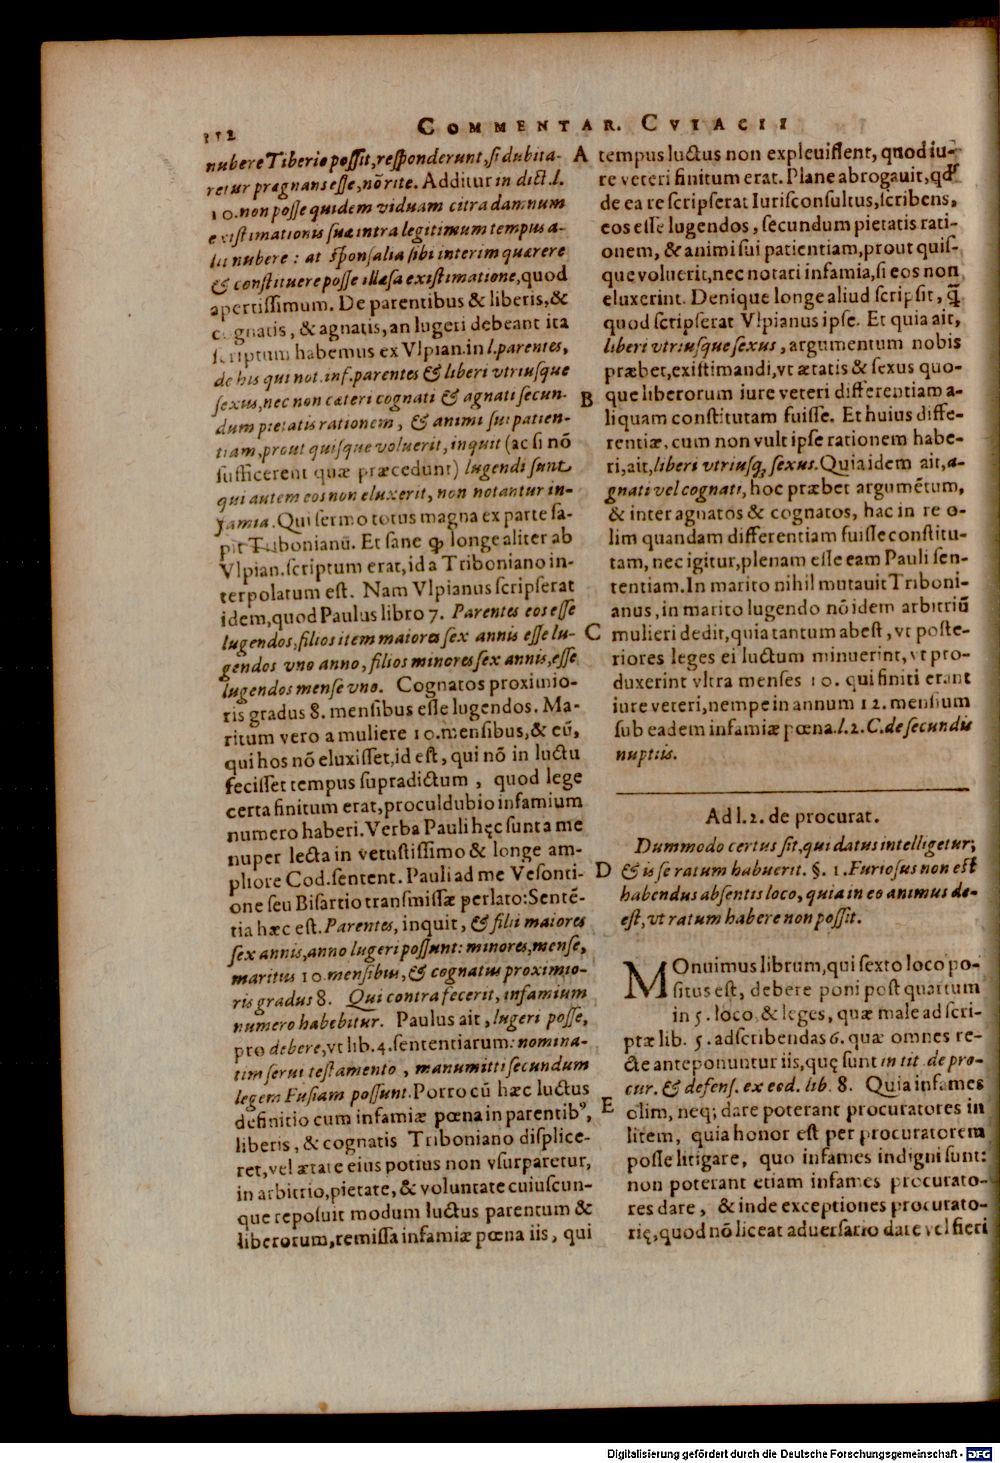 312
COMMENTAR. CVIACII
nubere Tiberio poſſit, reſponderunt, ſi dubita-
retur prægnans eſſe, nõ rite. Additur in dict. l.
10. non poſſe quidem viduam citra damnum
existimationis ſuæ intra legitimum tempus a-
lii nubere: at ſponſalia ſibi interim quærere
& conſtituere poſſe illæſa existimatione, quod
apertiſſimum. De parentibus & liberis, &
cognatis, & agnatis, an lugeri debeant ita
ſcriptum habemus ex Vlpian. in l. parentes,
de his qui not. inf. parentes & liberi vtriuſque
ſexus, nec non cæteri cognati & agnati ſecun-
dum pietatis rationem, & animi ſui patien-
tiam, prout quiſque voluerit, inquit (ac ſi nõ
ſufficerent quæ præcedunt) lugendi ſunt
qui autem eos non eluxerit, non notantur in-
famia. Qui ſermo totus magna ex parte ſa-
pit Tribonianũ. Et ſane ꝙ longe aliter ab
Vlpian. ſcriptum erat, id a Triboniano in-
terpolatum eſt. Nam Vlpianus ſcripſerat
idem, quod Paulus libro 7. Parentes eos eſſe
lugendos, filios item maiores ſex annis eſſe lu-
gendos vno anno, filios minores ſex annis, eſſe
lugendos menſe vno. Cognatos proximio-
ris gradus 8. menſibus eſſe lugendos. Ma-
ritum vero a muliere 10. menſibus, & eũ,
qui hos nõ eluxiſſet, id eſt, qui nõ in luctu
feciſſet tempus ſupradictum, quod lege
certa finitum erat, proculdubio infamium
numero haberi. Verba Pauli hęc ſunt a me
nuper lecta in vetuſtiſſimo & longe am-
pliore Cod. ſentent. Pauli ad me Veſonti-
one ſeu Biſartio tranſmiſſæ perlato: Sentẽ-
tia hæc eſt. Parentes, inquit, & filii maiores
ſex annis, anno lugeri poſſunt: minores, menſe,
maritus 10. menſibus, & cognatus proximio-
ris gradus 8. Qui contra fecerit, infamium
numero habebitur. Paulus ait, lugeri poſſe,
pro debere, vt lib. 4. ſententiarum: nomina-
tim ſerui teſtamento, manumitti ſecundum
legem Fuſiam poſſunt. Porro cũ hæc luctus
definitio cum infamiæ pœna in parentibꝰ,
liberis, & cognatis Triboniano diſplice-
ret, vel ætate eius potius non vſurparetur,
in arbitrio, pietate, & voluntate cuiuſcun-
que repoſuit modum luctus parentum &
liberorum, remiſſa infamiæ pœna iis, qui
A
B
C
D
E
tempus luctus non expleuiſſent, quod iu-
re veteri finitum erat. Plane abrogauit, qđ
de ea re ſcripſerat Iuriſconſultus, ſcribens,
eos eſſe lugendos, ſecundum pietatis rati-
onem, & animi ſui patientiam, prout quiſ-
que voluerit, nec notati infamia, ſi eos non
eluxerint. Denique longe aliud ſcripſit, q̃
quod ſcripſerat Vlpianus ipſe. Et quia ait,
liberi vtriuſque ſexus, argumentum nobis
præbet, exiſtimandi, vt ætatis & ſexus quo-
que liberorum iure veteri differentiam a-
liquam conſtitutam fuiſſe. Et huius diffe-
rentiæ, cum non vult ipſe rationem habe-
ri, ait, liberi vtriuſq; ſexus. Quia idem ait, a-
gnati vel cognati, hoc præbet argumẽtum,
& inter agnatos & cognatos, hac in re o-
lim quandam differentiam fuiſſe conſtitu-
tam, nec igitur, plenam eſſe eam Pauli ſen-
tentiam. In marito nihil mutauit Triboni-
anus, in marito lugendo nõ idem arbitriũ
mulieri dedit, quia tantum abeſt, vt poſte-
riores leges ei luctum minuerint, vt pro-
duxerint vltra menſes 10. qui finiti erant
iure veteri, nempe in annum 12. menſium
ſub eadem infamiæ pœna. l. 2. C. de ſecundis
nuptiis.
Ad l. 2. de procurat.
Dummodo certus ſit, qui datus intelligetur,
& is ſe ratum habuerit. §. 1. Furioſus non eſt
habendus abſentis loco, quia in eo animus de-
eſt, vt ratum habere non poſſit.
MOnuimus librum, qui ſexto loco po-
ſitus eſt, debere poni poſt quartum
in 5. loco & leges, quæ male adſcri-
ptæ lib. 5. adſcribendas 6. quæ omnes re-
cte anteponuntur iis, quę ſunt in tit. de pro-
cur. & defenſ. ex eod. lib. 8. Quia infames
olim, neq; dare poterant procuratores in
litem, quia honor eſt per procuratorem
poſſe litigare, quo infames indigni ſunt:
non poterant etiam infames procurato-
res dare, & inde exceptiones procurato-
rię, quod nõ liceat aduerſario dare vel fieri
Digitalisierung gefördert durch die Deutsche Forschungsgemeinschaft - DFG